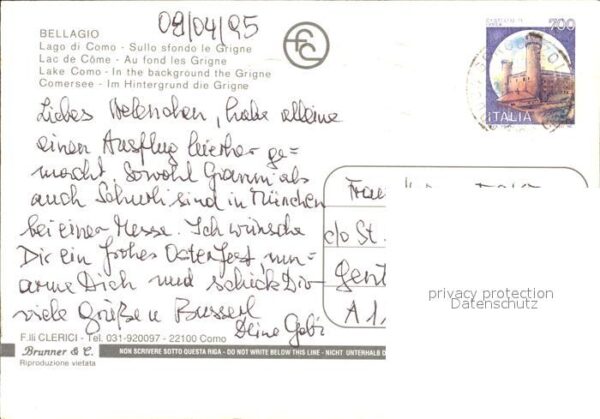 BELLAGIO
Lago di Como - Sullo sfondo le Grigne
Lac de Côme - Au fond les Grigne
Lake Como - In the background the Grigne
Comersee - Im Hintergrund die Grigne
09/04/95
fc
700
ITALIA
Liebes Helenchen, habe alleine
einen Ausflug hierher ge-
macht. Sowohl Gianni als
auch sind in München
bei einer Messe. Ich wünsche
Dir ein frohes Osterfest, um-
arme Dich und schick Dir
viele Grüße u Busserl
Deine Gabi
Frau
c/o St.
Gent
A 1
privacy protection
Datenschutz
F.lli CLERICI - Tel. 031-920097 - 22100 Como
Brunner & C.
NON SCRIVERE SOTTO QUESTA RIGA - DO NOT WRITE BELOW THIS LINE - NICHT UNTERHALB D
Riproduzione vietata